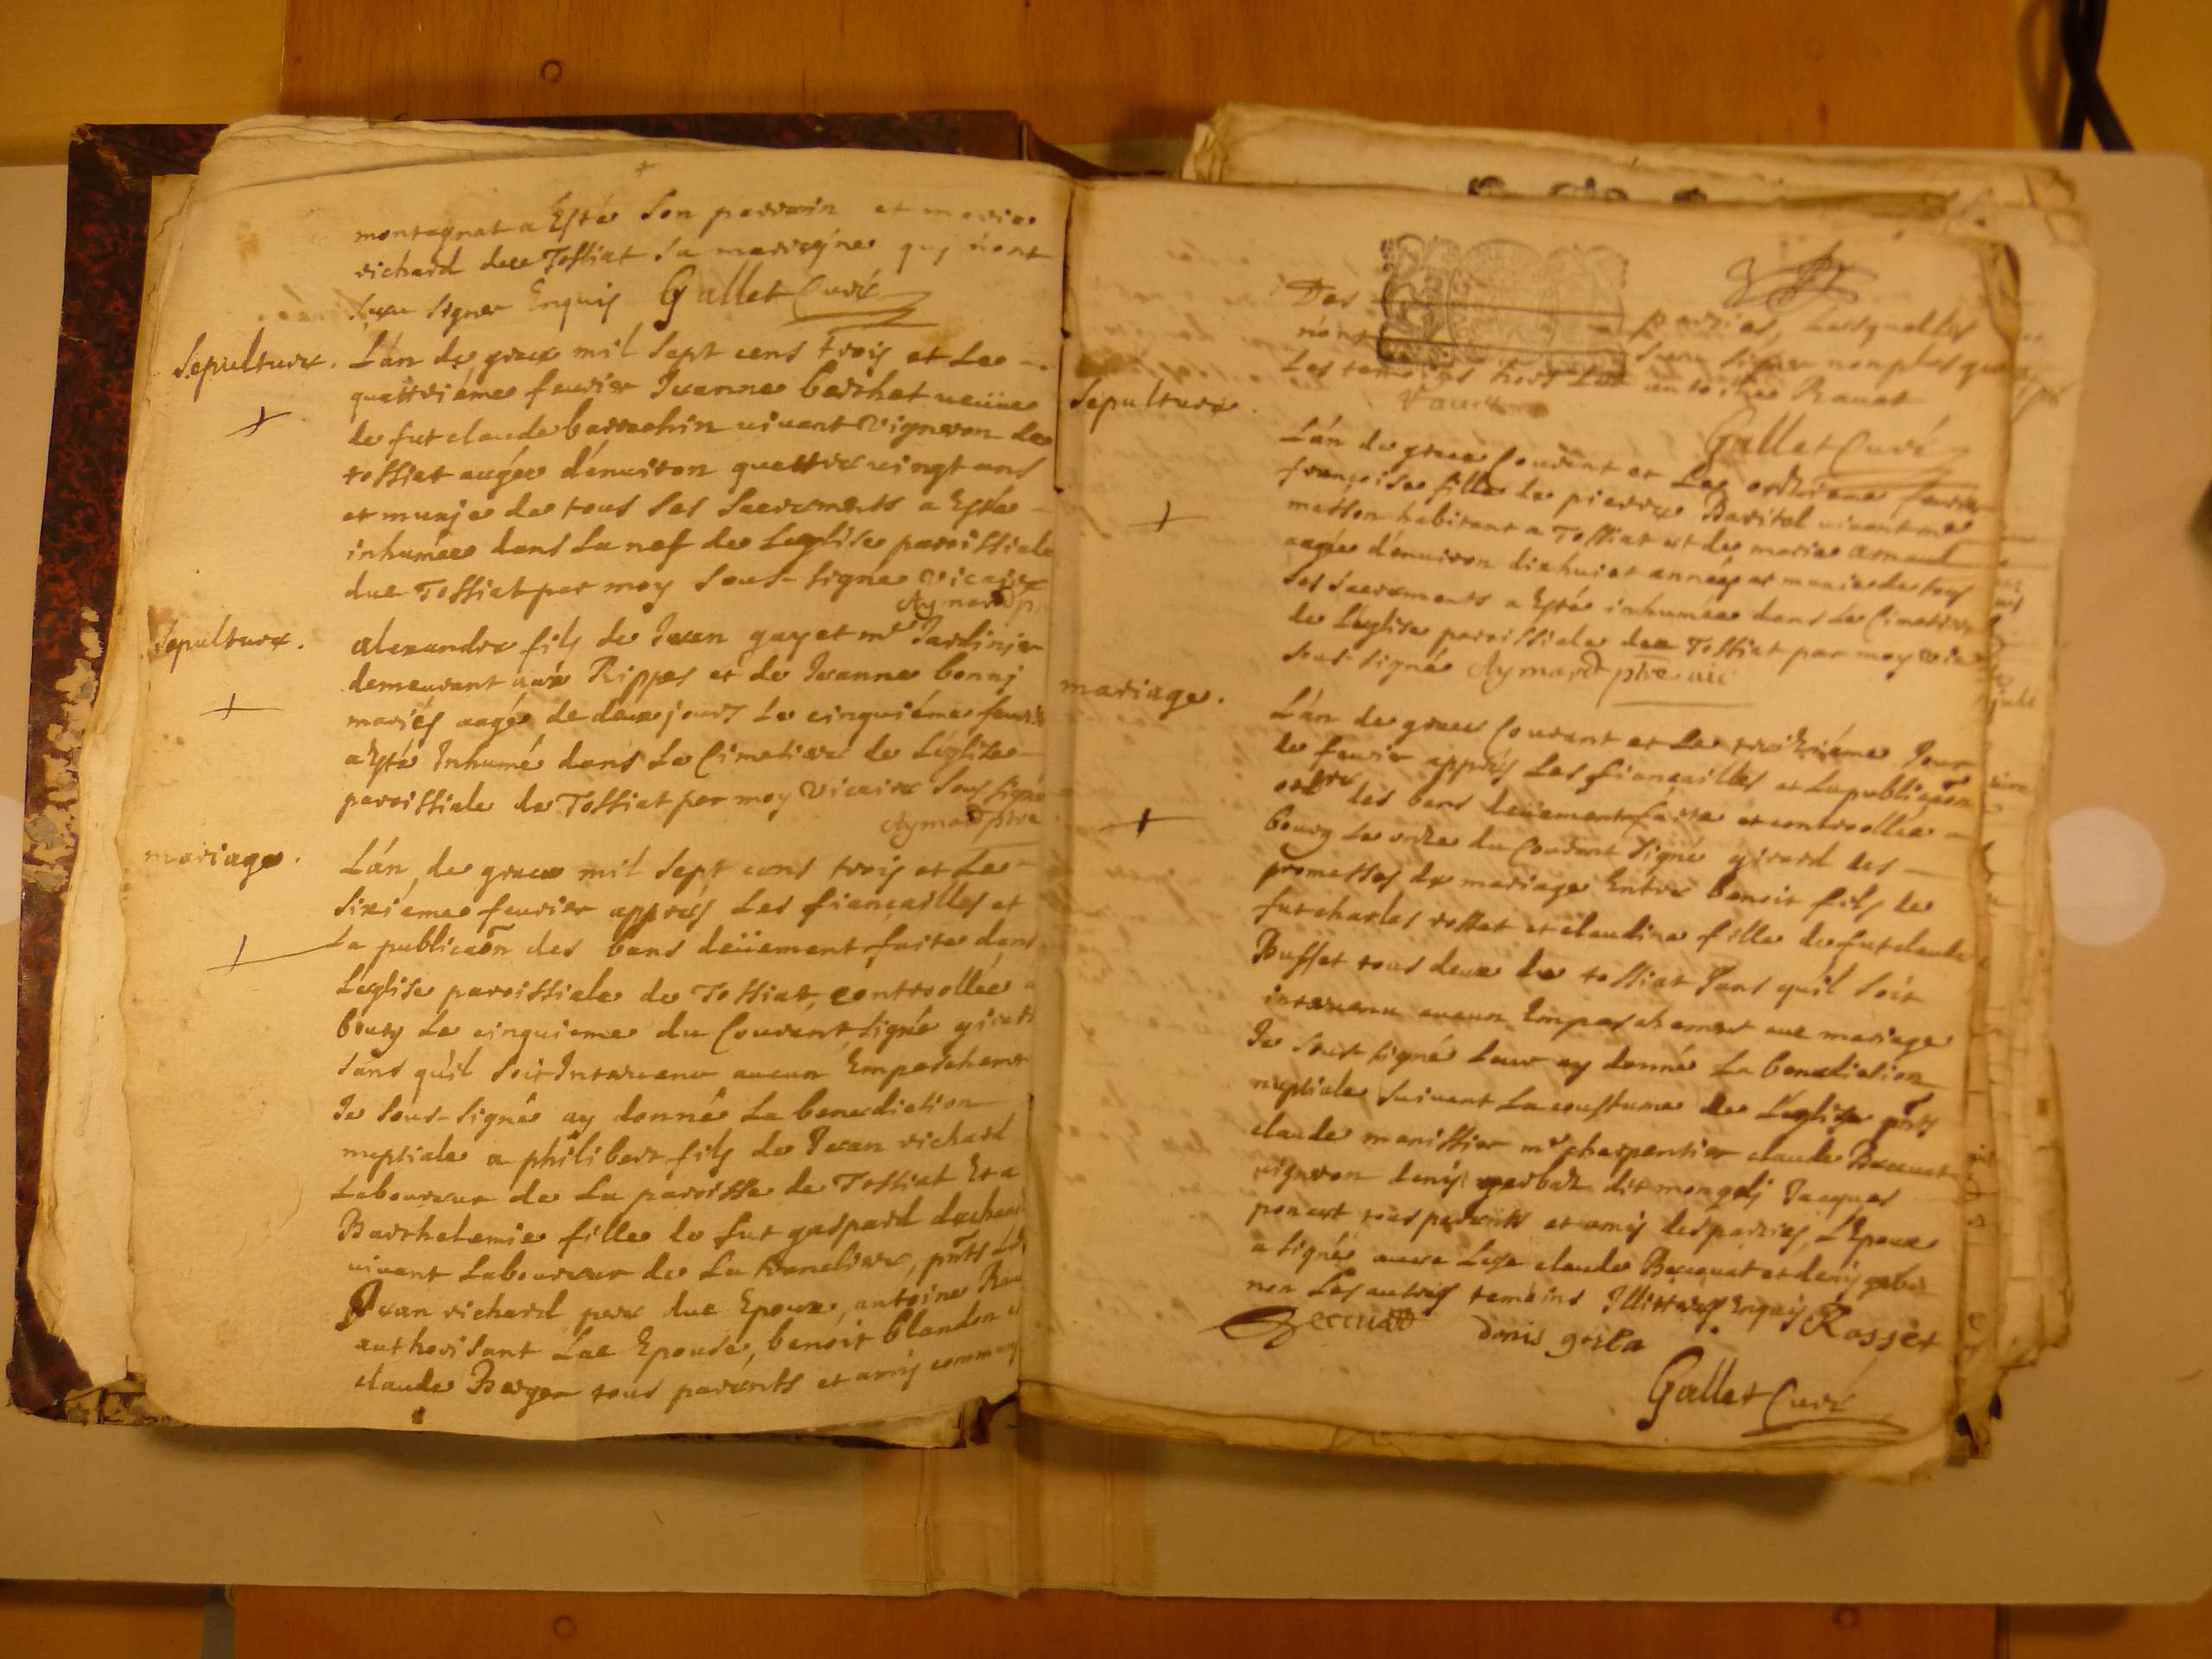 montagnat a Esté son parrain et marie
richard dud Tossiat sa marreyne quj n'ont
sceu signer Enquis Gallet Curé
Sepulture.
L'án de grace mil sept cens trois et le
quattriéme feurier Jeanne berthet ueüue
de fut claude barrachin uiuant Vigneron de
tossiat aagée d'énuiron quattre uingt ans
et munje de tous ses sacrements a Esté
inhumée dans la nef de Léglise paroissiale
dud Tossiat par moy sous-signé Vicaire
Aymard p
Sepulture.
alexandre fils de Jean gayet me Jardinier
demeurant aux Rippes et de Jeanne bonnj
mariés aagé de deux jours le cinquiéme feurie
a Esté Inhumé dans le Cimetiere de Léglise
paroissiale de Tossiat par moy Vicaire sous signé
Aymard ptre
mariage.
L'án, de grace mil sept cens trois et le
sixieme feurier apprés les fiançailles et
la publicaõn des bans deüement faite dans
Léglise paroissiale de Tossiat, controllée a
bourg le cinquieme du Courant, signé girard
sans qu'il soit Interuenu aucun Empeschement
Je sous-signé ay donné la benediction
nuptiale a philibert fils de Jean richard
Laboureur de la paroisse de Tossiat Et a
Barthelemie fille de fut gaspard
uiuant Laboureur de la, pñts
Jean richard pere dud Epoux, antoine
authorisant lad Epouse, benoit blandon
claude Berger tous parents et amis
Des parties, lesquelles
n'ont sceu signer non plus que
les temoins hors led antoine Rauat
Gallet Curé
Sepulture.
L'án de grace Courant et le onziéme feurier
françoise fille de pierre Baritel uiuant me
masson habitant a Tossiat et de marie arnaud
aagée d'énuiron dixhuict années et munie de tous
ses sacrements a Esté inhumée dans le Cimetiere
de Léglise paroissiale dud Tossiat par moy vic
sous-signé Aymard ptre uic
mariage.
L'án de grace Courant et le treiziéme Jour
de feurier apprés les fiançailles et la publicaõn
des bans deüement faite et controollée
bourg le onze du Courant signé girard des
promesses de mariage Entre benoit fils de
fut charles rosset et claudine fille de fut claude
Buffet tous deux de tossiat sans qu'il soit
interuenu aucun Empeschement aud mariage
Je sous signé leur ay donné la benediction
nuptiale suiuant la coustume de Léglise pñts
claude manissier me charpentier claude Beccuat
uigneron denis dit mongelj Jacques
poncet tous parents et amis des parties, L'Epoux
a signé auec led claude Beccuat et denis
non les autres temoins Illittérés Enquis Rosset
Beccuat denis
Gallet Curé